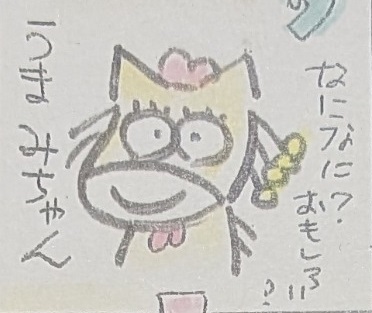 なになに?
おもしろい?
うまみちゃん